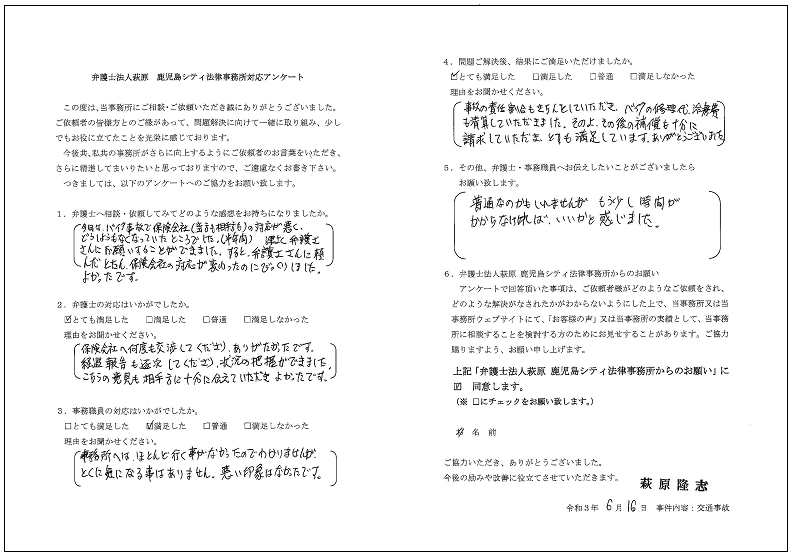 弁護士法人萩原　鹿児島シティ法律事務所対応アンケート
この度は、当事務所にご相談・ご依頼いただき誠にありがとうございました。
ご依頼者の皆様方とのご縁があって、問題解決に向けて一緒に取り組み、少し
でもお役に立てたことを光栄に感じております。
今後共、私共の事務所がさらに向上するようにご依頼者のお言葉をいただき、
さらに精進してまいりたいと思っておりますので、ご遠慮なくお書き下さい。
つきましては、以下のアンケートへのご協力をお願い致します。
1．弁護士へ相談・依頼してみてどのような感想をお持ちになりましたか。
今回は、バイク事故で保険会社(当方も相手も)の対応が悪く、
どうしようもなくなっていたところでした。(半年間)　弁護士
さんにお願いすることができました。すると、弁護士さんに頼
んだとたん、保険会社の対応が変わったのにびっくりしました。
よかったです。
2．弁護士の対応はいかがでしたか。
☑とても満足した　□満足した　□普通　□満足しなかった
理由をお聞かせください。
保険会社へ何度も交渉してくださり、ありがたかったです。
経過報告も逐次してくださり、状況の把握ができました。
こちらの意見も相手方に十分に伝えていただき よかったです。
3．事務職員の対応はいかがでしたか。
□とても満足した　☑満足した　□普通　□満足しなかった
理由をお聞かせください。
事務所へは、ほとんど行く事がなかったのでわかりませんが、
とくに気になる事はありません。悪い印象はなかったです。
4．問題ご解決後、結果にご満足いただけましたか。
☑とても満足した　□満足した　□普通　□満足しなかった
理由をお聞かせください。
事故の責任割合もきちんとしていただき、バイクの修理代、治療費
も清算していただきました。その上、その後の補償も十分に
請求していただき、とても満足しています。ありがとうございました
5．その他、弁護士・事務職員へお伝えしたいことがございましたら
お願い致します。
普通なのかもしれませんが もう少し時間が
かからなければ、いいかと感じました。
6．弁護士法人萩原 鹿児島シティ法律事務所からのお願い
アンケートで回答頂いた事項は、ご依頼者様がどのようなご依頼をされ、
どのような解決がなされたかがわからないようにした上で、当事務所又は当
事務所ウェブサイトにて、「お客様の声」又は当事務所の実績として、当事務
所に相談することを検討する方のためにお見せすることがあります。ご協力
賜りますよう、お願い申し上げます。
上記「弁護士法人萩原 鹿児島シティ法律事務所からのお願い」に
☑　同意します。
（※ □にチェックをお願い致します。）
名 前
ご協力いただき、ありがとうございました。
今後の励みや改善に役立てさせていただきます。
萩原隆志
令和3年 6月 16日　事件内容：交通事故